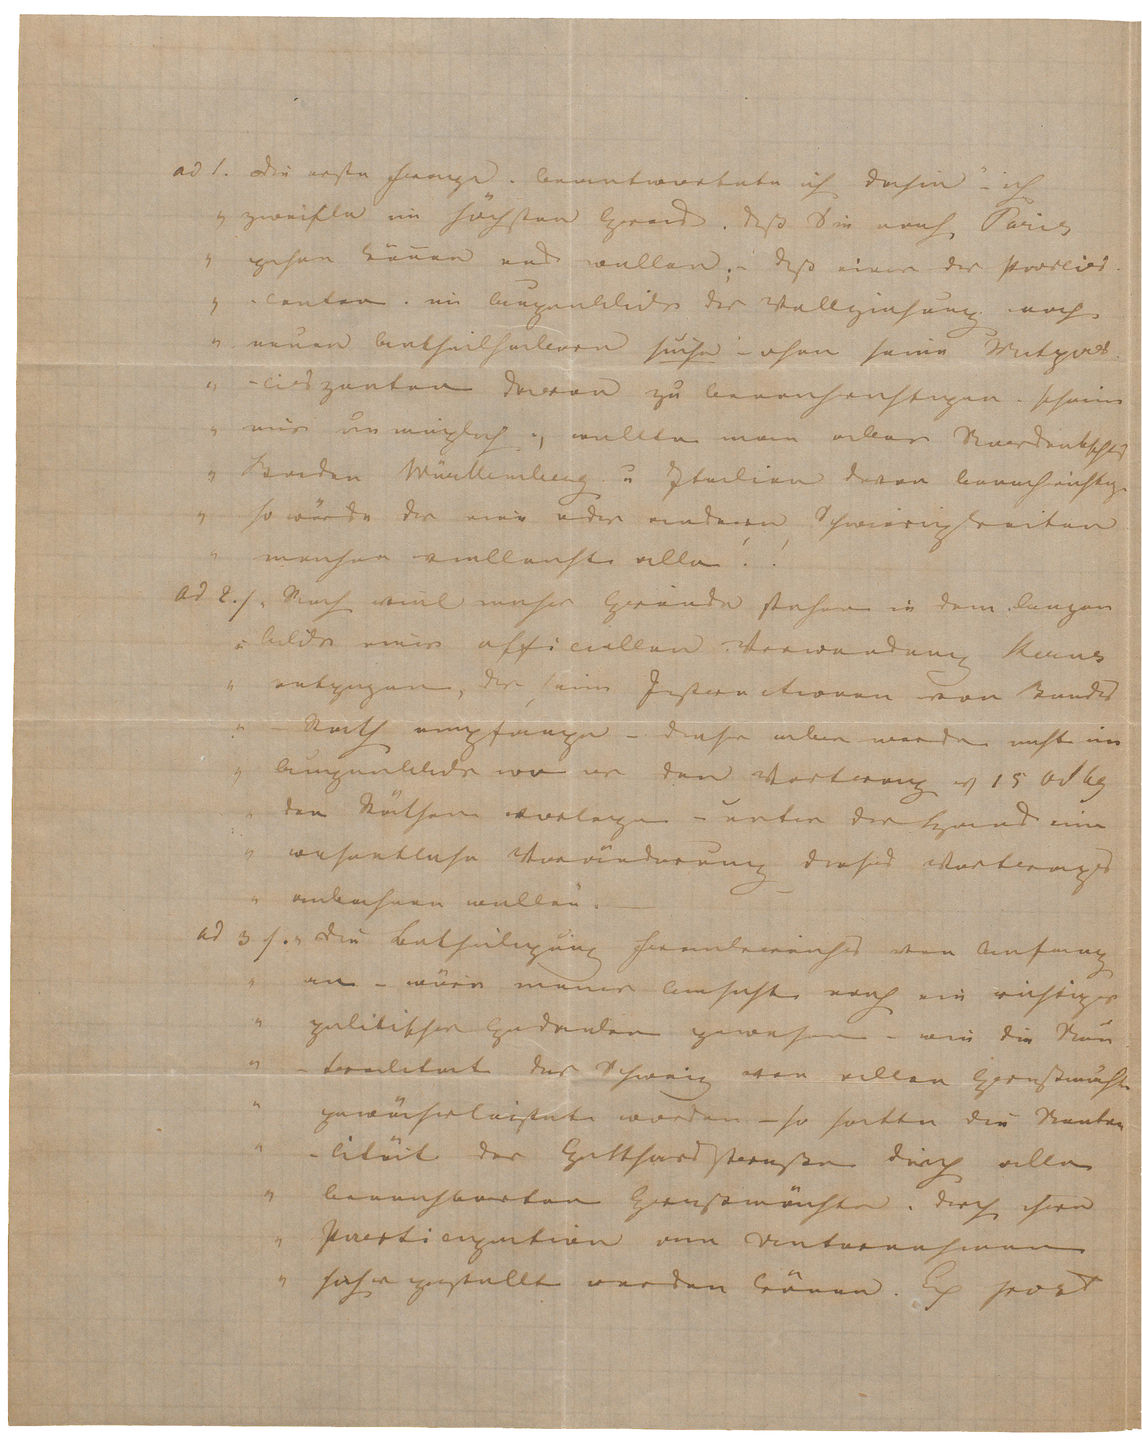 ad 1. Die erste Frage. beantwortete ich dahin "– ich
" zweifle im höchsten Grad. daß Sie nach Paris
" gehen können und wollen; – daß einer der Paccis-
" -centen. im Augenblicke der Vollziehung nach
" neuen Betheilhabern suche – ohne seine Mitpac-
" -ciszenten davon zu benachrichtigen – scheine
" mir unmöglich ", wollte man aber Norddeutschld
" Baden Württemberg. u Italien davon benachrichtig.
" so würde der eine oder andere Schwierigkeiten
" machen vielleicht alle!!
ad 2./. Noch viel mehr Gründe stehen in dem Augen
" blicke einer officiellen Verwendung Kerns
" entgegen, der seine Instructionen von Bundes
" – Rath empfange – dieser aber werde nicht im
" Augenblicke wo er den Vertrag v 15 Oct 69
" den Räthen vorlege – unter der Hand eine
" wesentliche Veränderung dieses Vertrages
" anbahnen wollen. —
ad 3 /. " Die Betheiligung Frankreichs von Anfang
" an – wäre meiner Ansicht nach ein richtiger
" politischer Gedanken gewesen – wie die Neu
" – tralitaet der Schweiz von allen Großmächten
" gewährleistet worden – so hätte die Neutra
" – lität der Gotthardstraße durch alle
" benachbarten Großmächte. durch ihre
" Participation am Unternehmen
" sicher gestellt werden können. Ex post